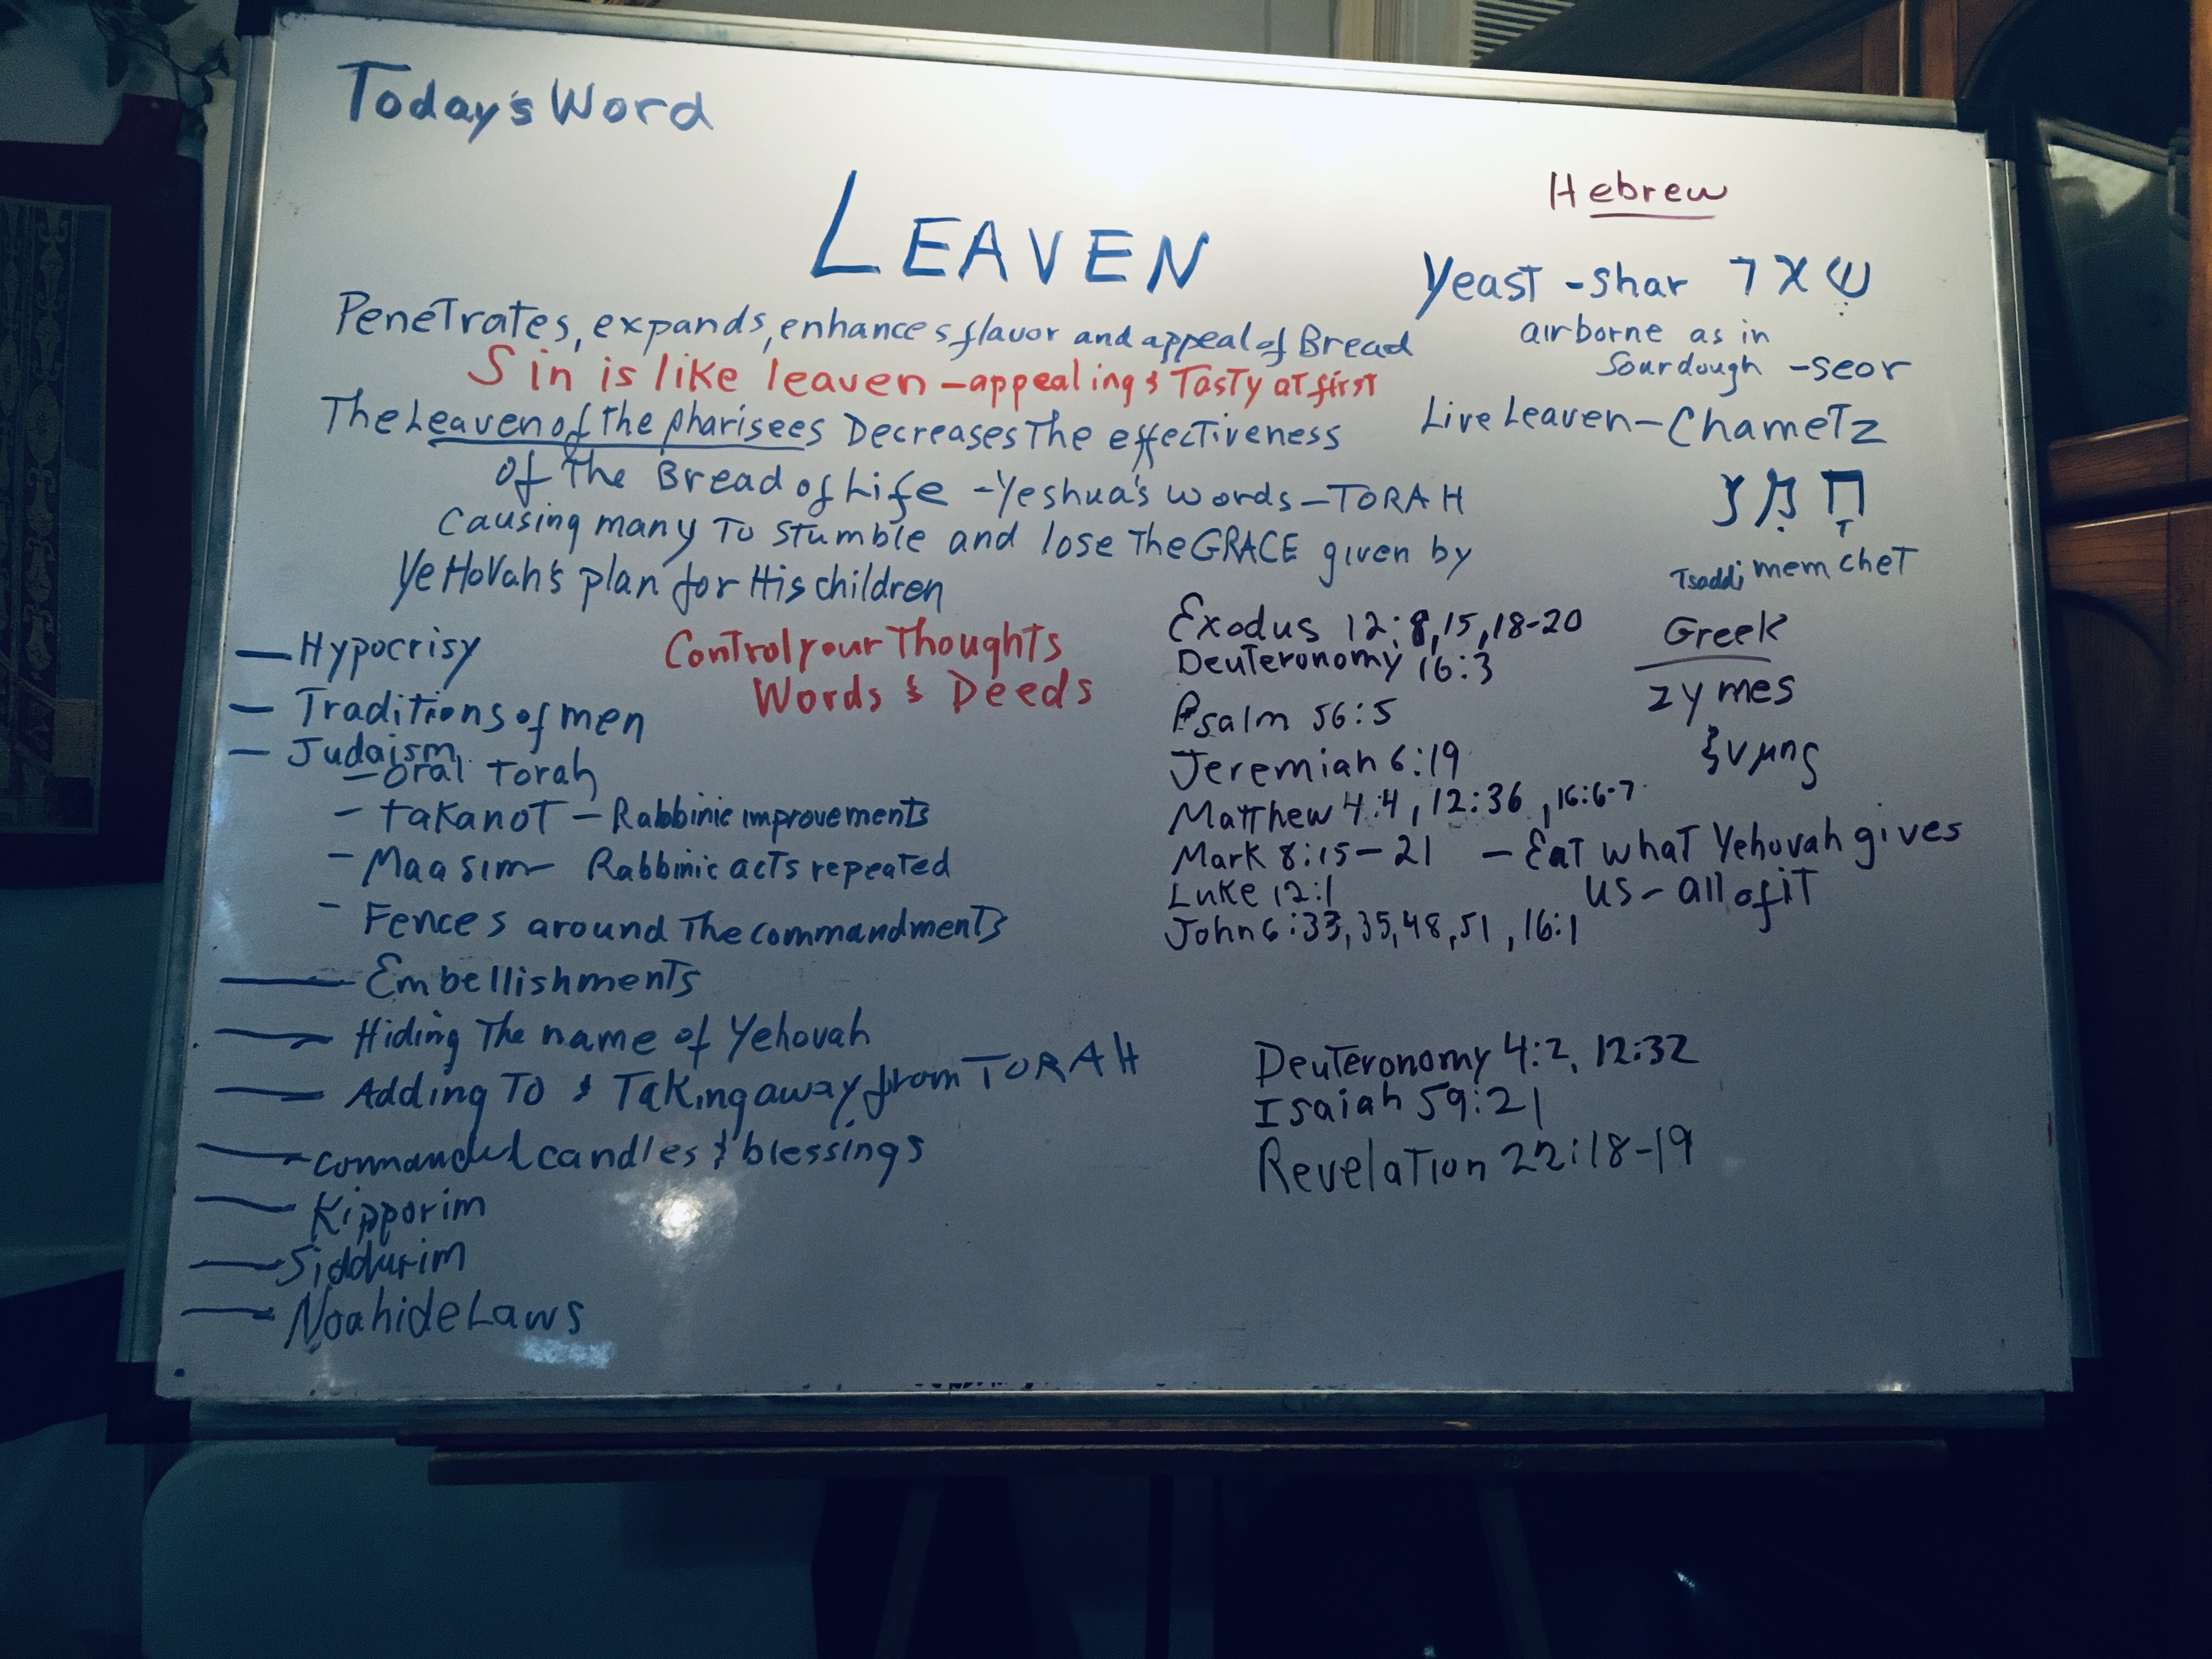 Today's Word
LEAVEN
Penetrates, expands, enhances flavor and appeal of Bread
Sin is like leaven - appealing & Tasty at first
The Leaven of the pharisees Decreases The effectiveness
of The Bread of Life - Yeshua's words - TORAH
Causing many To stumble and lose The GRACE given by
YeHoVah's plan for His children
— Hypocrisy
— Traditions of men
— Judaism
- oral Torah
- takanot - Rabbinic improvements
- Maasim - Rabbinic acts repeated
- Fences around The commandments
— Embellishments
— Hiding The name of Yehovah
— Adding To & Taking away from TORAH
— commanded candles & blessings
— Kipporim
— Siddurim
— Noahide Laws
Control your Thoughts
Words & Deeds
Hebrew
Yeast - Shar שׂאר
airborne as in
Sourdough - seor
Live Leaven - Chametz
חמץ
Tsaddi mem chet
Greek
zymes
ζυμης
Exodus 12:8,15,18-20
Deuteronomy 16:3
Psalm 56:5
Jeremiah 6:19
Matthew 4:4, 12:36, 16:6-7
Mark 8:15-21 - Eat what Yehovah gives
us - all of it
Luke 12:1
John 6:33,35,48,51, 16:1
Deuteronomy 4:2, 12:32
Isaiah 59:21
Revelation 22:18-19